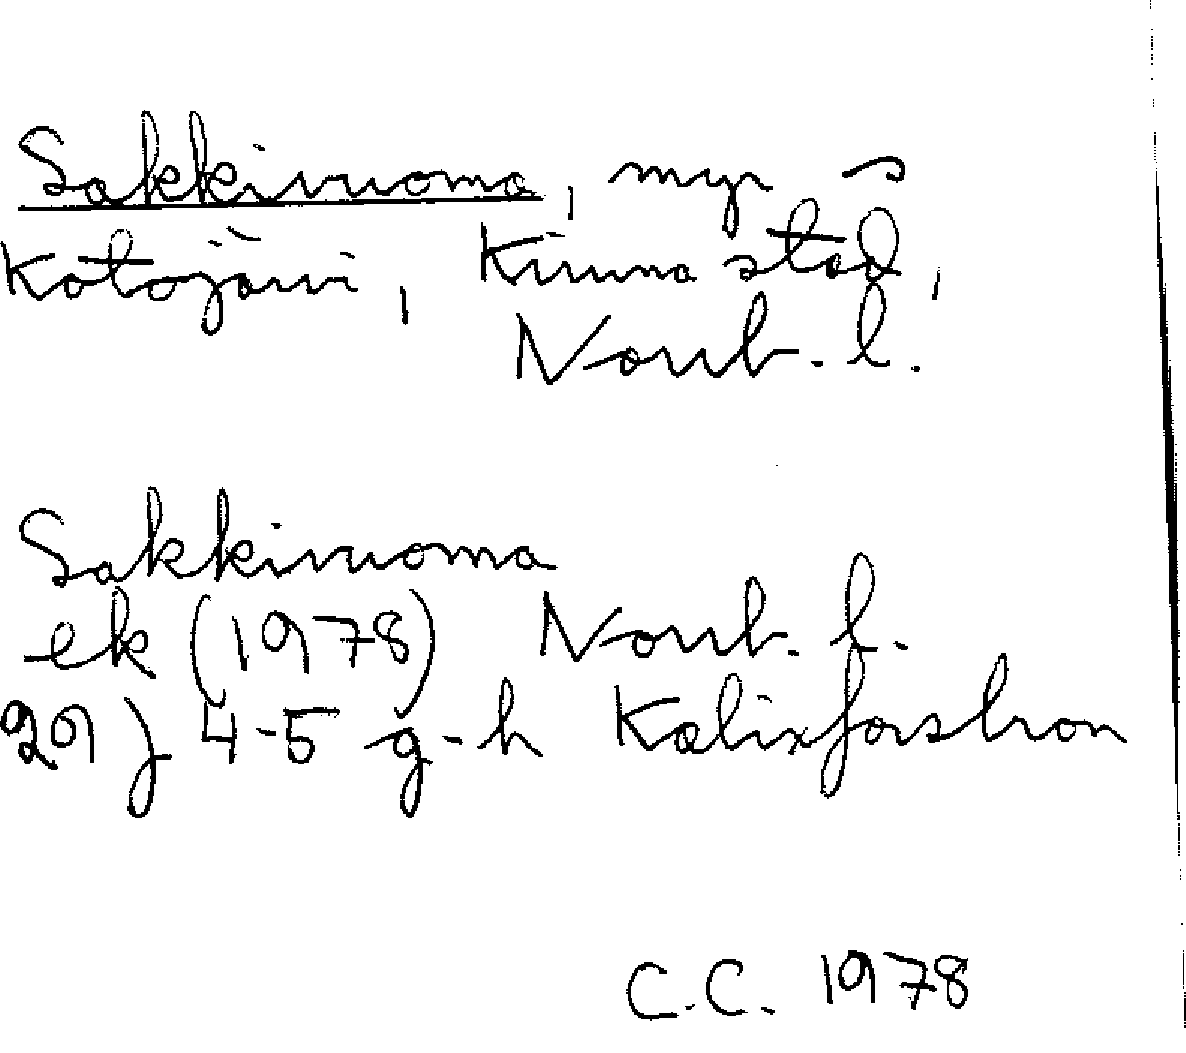 Sakkivuoma, myr s
Kotojärvi, Kiruna stad,
Norrb. l.
Sakkivuoma
ek (1978) Norrb. l.
29 J 4-5 g-h Kalixforsbron
C.C. 1978